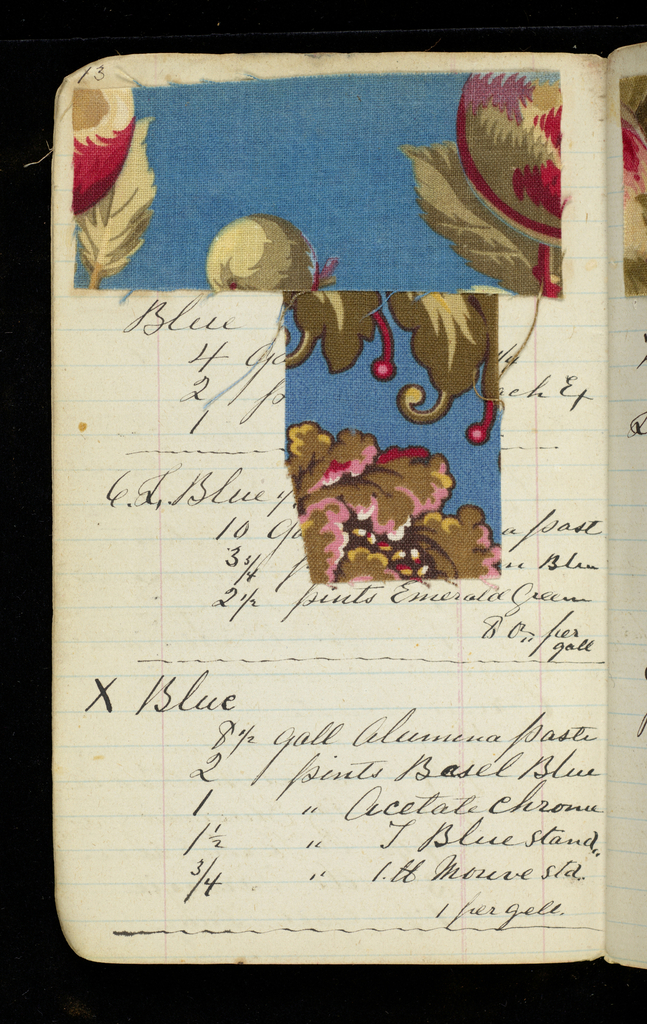 13
Blue
4
2 ch Ex
1
Blue
10 a past
3 3/4 n Blue
2 1/2 pints Emerald Green
8 oz per
gall
X Blue
8 1/2 gall Alumina paste
2 pints Basel Blue
1 " Acetate Chrome
1 1/2 " T Blue stand.
3/4 " 1.H Mouve std.
1 per gell.